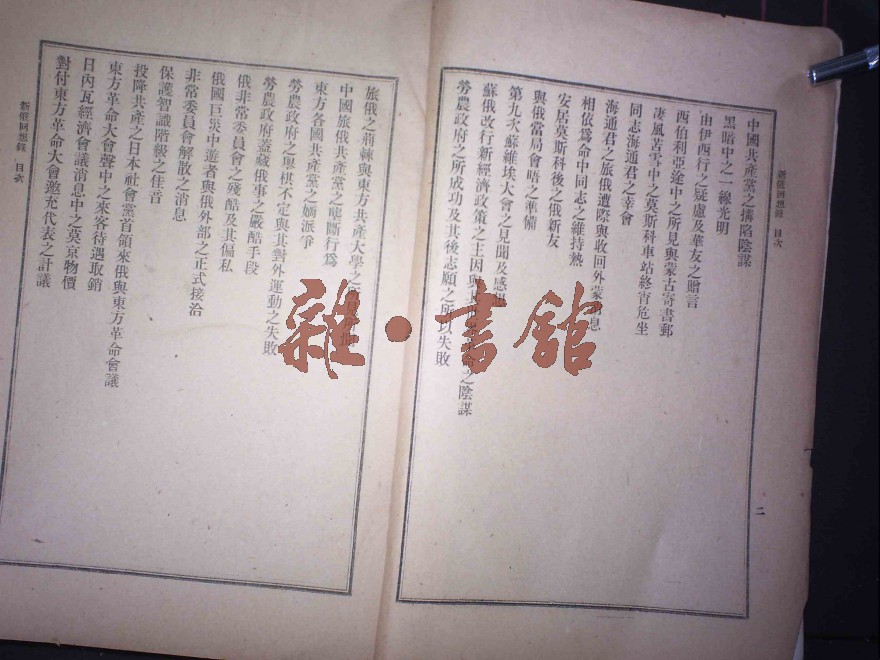 新俄囘想錄 目次
二
中國共產黨之搆陷陰謀
黑暗中之一線光明
由伊西行之疑慮及華友之贈言
西伯利亞途中之所見與蒙古寄書郵
淒風苦雪中之莫斯科車站終宵危坐
同志海通君之幸會
海通君之旅俄遭際與收回外蒙消息
相依爲命中同志之維持熱
安居莫斯科後之俄新友
與俄當局會晤之準備
第九次蘇維埃大會之見聞及感想
蘇俄改行新經濟政策之主因與之陰謀
勞農政府之所成功及其後志願之所以失敗
旅俄之荊棘與東方共產大學之
中國旅俄共產黨之壟斷行爲
東方各國共產黨之嫡派爭
勞農政府之舉棋不定與其對外運動之失敗
勞農政府蓋藏俄事之嚴酷手段
俄非常委員會之殘酷及其偏私
俄國巨災中遊者與俄外部之正式接洽
非常委員會解散之消息
保護智識階級之佳音
投降共產之日本社會黨首領來俄與東方革命會議
東方革命大會聲中之來客待遇取銷
日內瓦經濟會議消息中之莫京物價
對付東方革命大會邀充代表之計議
新俄囘想錄 目次
雜·書館